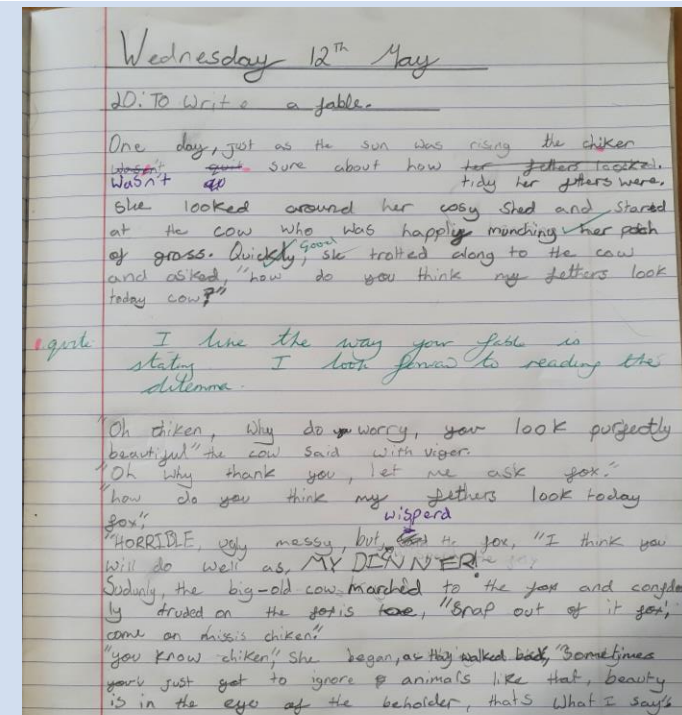 Wednesday 12th May
LO: To write a fable.
One day, just as the sun was rising the chiken
wasn't quit sure about how her fethers looked.
wasn't tidy her fethers were.
She looked around her cosy shed and stared
at the cow who was happly munching her patch
of grass. Quickly, she trotted along to the cow
Good
and asked, "how do you think my fethers look
today cow?"
I like the way your fable is
stating. I look forwad to reading the
dilemma.
"Oh chiken, why do you worry, you look purfectly
beautiful" the cow said with viger.
"Oh why thank you, let me ask fox."
"how do you think my fethers look today
fox",
wisperd
"HORRIBLE, ugly messy, but, the fox, "I think you
will do well as, MY DINNER!
Sudunly, the big-old cow marched to the fox and confde
ly truded on the foxis toe, "Snap out of it fox",
come on missis chiken."
"you know chiken," She began, as they walked back, "Sometimes
just got to ignore animals like that, beauty
is in the eye of the beholder, thats what I say's